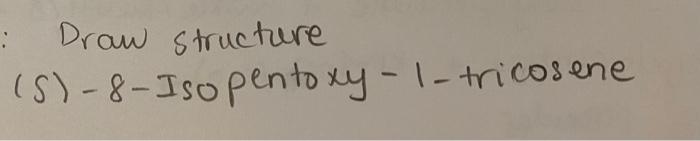 : Draw structure
(S)-8-Isopentoxy-1-tricosene